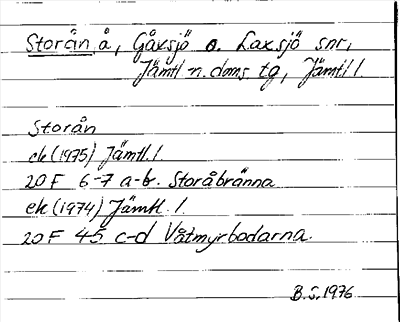 Storån å, Gåxsjö o. Laxsjö snr,
Jämtl n. doms tg, Jämtl l.
Storån
ek (1975) Jämtl. l.
20F 6-7 a-b. Storåbränna
ek (1974) Jämtl. l.
20F 45 c-d Våtmyrbodarna.
B.S. 1976